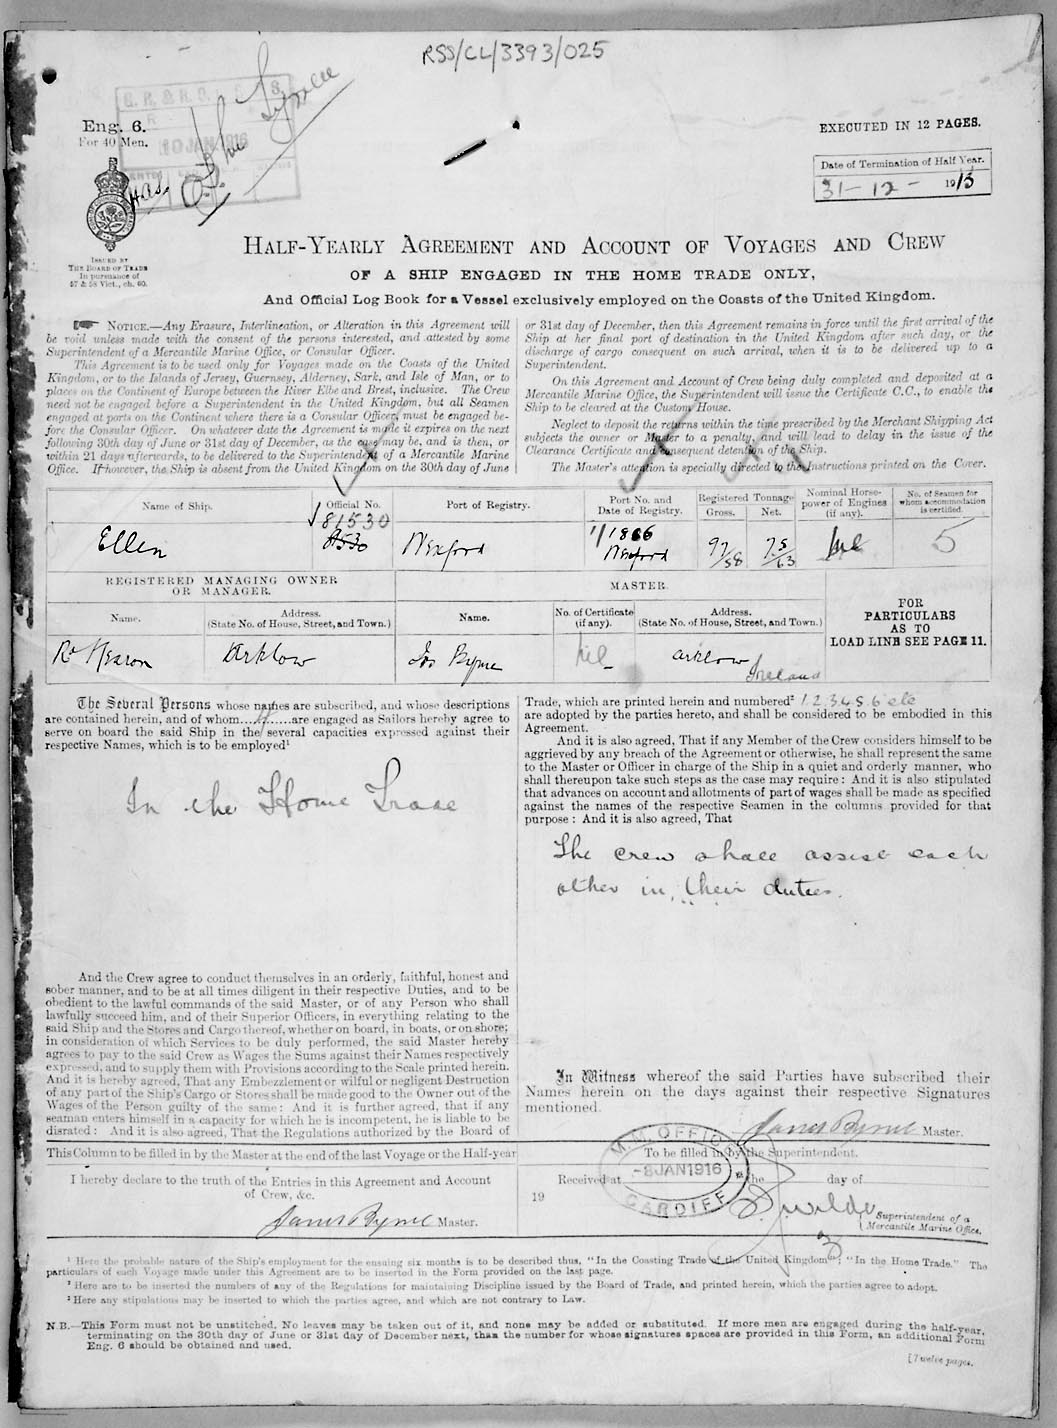 RSS/CL/3393/025
Eng. 6.
For 40 Men.
10 JAN 1916
EXECUTED IN 12 PAGES.
Date of Termination of Half Year.
31-12-1915
ISSUED BY
THE BOARD OF TRADE
In pursuance of
57 & 58 Vict., ch. 60.
HALF-YEARLY AGREEMENT AND ACCOUNT OF VOYAGES AND CREW
OF A SHIP ENGAGED IN THE HOME TRADE ONLY,
And Official Log Book for a Vessel exclusively employed on the Coasts of the United Kingdom.
NOTICE.—Any Erasure, Interlineation, or Alteration in this Agreement will
be void unless made with the consent of the persons interested, and attested by some
Superintendent of a Mercantile Marine Office, or Consular Officer.
This Agreement is to be used only for Voyages made on the Coasts of the United
Kingdom, or to the Islands of Jersey, Guernsey, Alderney, Sark, and Isle of Man, or to
places on the Continent of Europe between the River Elbe and Brest, inclusive. The Crew
need not be engaged before a Superintendent in the United Kingdom, but all Seamen
engaged at ports on the Continent where there is a Consular Officer, must be engaged be-
fore the Consular Officer. On whatever date the Agreement is made it expires on the next
following 30th day of June or 31st day of December, as the case may be, and is then, or
within 21 days afterwards, to be delivered to the Superintendent of a Mercantile Marine
Office. If however, the Ship is absent from the United Kingdom on the 30th day of June
or 31st day of December, then this Agreement remains in force until the first arrival of the
Ship at her final port of destination in the United Kingdom after such day, or the
discharge of cargo consequent on such arrival, when it is to be delivered up to a
Superintendent.
On this Agreement and Account of Crew being duly completed and deposited at a
Mercantile Marine Office, the Superintendent will issue the Certificate C.C., to enable the
Ship to be cleared at the Custom House.
Neglect to deposit the returns within the time prescribed by the Merchant Shipping Act
subjects the owner or Master to a penalty, and will lead to delay in the issue of the
Clearance Certificate and consequent detention of the Ship.
The Master's attention is specially directed to the Instructions printed on the Cover.
Name of Ship.
Official No.
Port of Registry.
Port No. and
Date of Registry.
Registered Tonnage
Gross.
Net.
Nominal Horse-
power of Engines
(if any).
No. of Seamen for
whom accommodation
is certified.
Ellen
81530
Wexford
1/1886
Wexford
97/58
75/63
Nil
5
REGISTERED MANAGING OWNER
OR MANAGER.
MASTER.
FOR
PARTICULARS
AS TO
LOAD LINE SEE PAGE 11.
Name.
Address.
(State No. of House, Street, and Town.)
Name.
No. of Certificate
(if any).
Address.
(State No. of House, Street, and Town.)
Rd Kearon
Arklow
Jas Byrne
Nil
Arklow
Ireland
The Several Persons whose names are subscribed, and whose descriptions
are contained herein, and of whom are engaged as Sailors hereby agree to
serve on board the said Ship in the several capacities expressed against their
respective Names, which is to be employed¹
In the Home Trade
And the Crew agree to conduct themselves in an orderly, faithful, honest and
sober manner, and to be at all times diligent in their respective Duties, and to be
obedient to the lawful commands of the said Master, or of any Person who shall
lawfully succeed him, and of their Superior Officers, in everything relating to the
said Ship and the Stores and Cargo thereof, whether on board, in boats, or on shore;
in consideration of which Services to be duly performed, the said Master hereby
agrees to pay to the said Crew as Wages the Sums against their Names respectively
expressed, and to supply them with Provisions according to the Scale printed herein.
And it is hereby agreed, That any Embezzlement or wilful or negligent Destruction
of any part of the Ship's Cargo or Stores shall be made good to the Owner out of the
Wages of the Person guilty of the same: And it is further agreed, that if any
seaman enters himself in a capacity for which he is incompetent, he is liable to be
disrated: And it is also agreed, That the Regulations authorized by the Board of
Trade, which are printed herein and numbered² 1 2 3 4 5 6 etc
are adopted by the parties hereto, and shall be considered to be embodied in this
Agreement.
And it is also agreed, That if any Member of the Crew considers himself to be
aggrieved by any breach of the Agreement or otherwise, he shall represent the same
to the Master or Officer in charge of the Ship in a quiet and orderly manner, who
shall thereupon take such steps as the case may require: And it is also stipulated
that advances on account and allotments of part of wages shall be made as specified
against the names of the respective Seamen in the columns provided for that
purpose: And it is also agreed, That
The crew shall assist each
other in their duties.
In Witness whereof the said Parties have subscribed their
Names herein on the days against their respective Signatures
mentioned.
James Byrne Master.
This Column to be filled in by the Master at the end of the last Voyage or the Half-year
I hereby declare to the truth of the Entries in this Agreement and Account
of Crew, &c.
James Byrne Master.
To be filled in by the Superintendent.
Received at the day of
19
M.M. OFFICE
-8 JAN 1916
CARDIFF
Superintendent of a
Mercantile Marine Office.
¹ Here the probable nature of the Ship's employment for the ensuing six months is to be described thus, "In the Coasting Trade of the United Kingdom"; "In the Home Trade." The
particulars of each Voyage made under this Agreement are to be inserted in the Form provided on the last page.
² Here are to be inserted the numbers of any of the Regulations for maintaining Discipline issued by the Board of Trade, and printed herein, which the parties agree to adopt.
³ Here any stipulations may be inserted to which the parties agree, and which are not contrary to Law.
N.B.—This Form must not be unstitched. No leaves may be taken out of it, and none may be added or substituted. If more men are engaged during the half-year,
terminating on the 30th day of June or 31st day of December next, than the number for whose signatures spaces are provided in this Form, an additional Form
Eng. 6 should be obtained and used.
[Twelve pages.